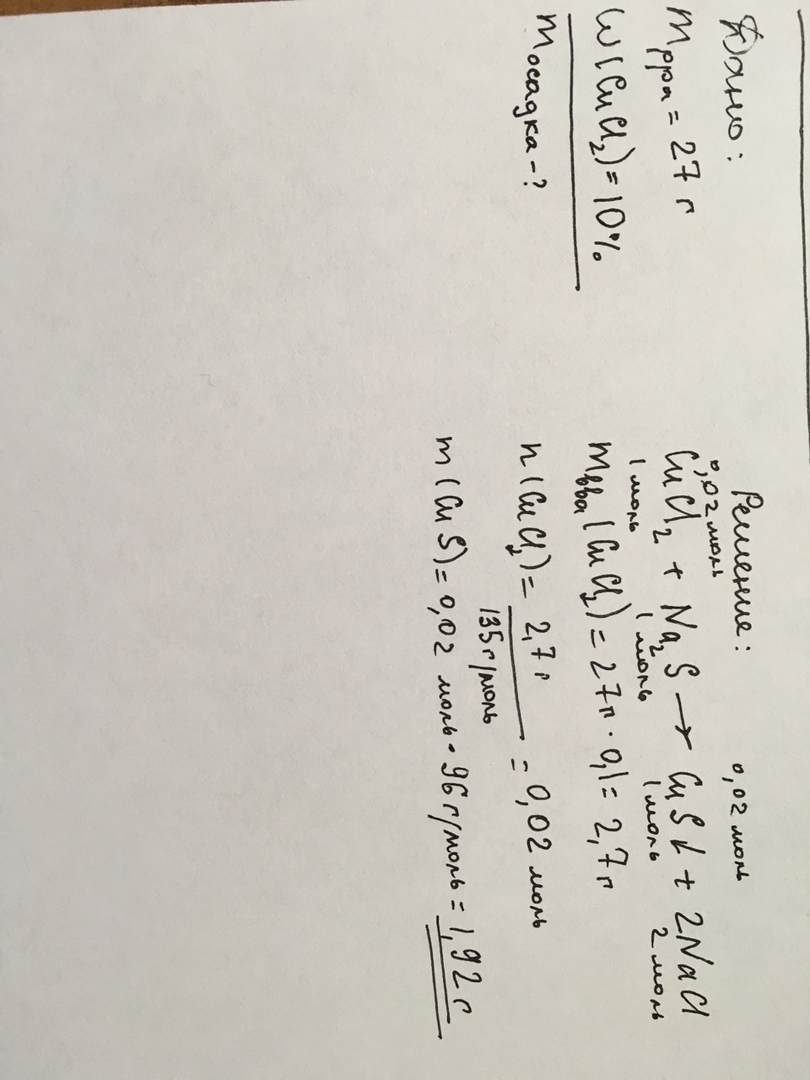 Дано:
m р-ра = 27 г
ω(CuCl₂) = 10%
m осадка - ?
Решение:
0,02 моль 0,02 моль
CuCl₂ + Na₂S → CuS↓ + 2NaCl
1 моль 1 моль 1 моль 2 моль
m в-ва (CuCl₂) = 27г · 0,1 = 2,7г
n(CuCl₂) = 2,7г = 0,02 моль
135г/моль
m(CuS) = 0,02 моль · 96 г/моль = 1,92 г